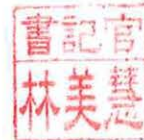 書記官
林美慧